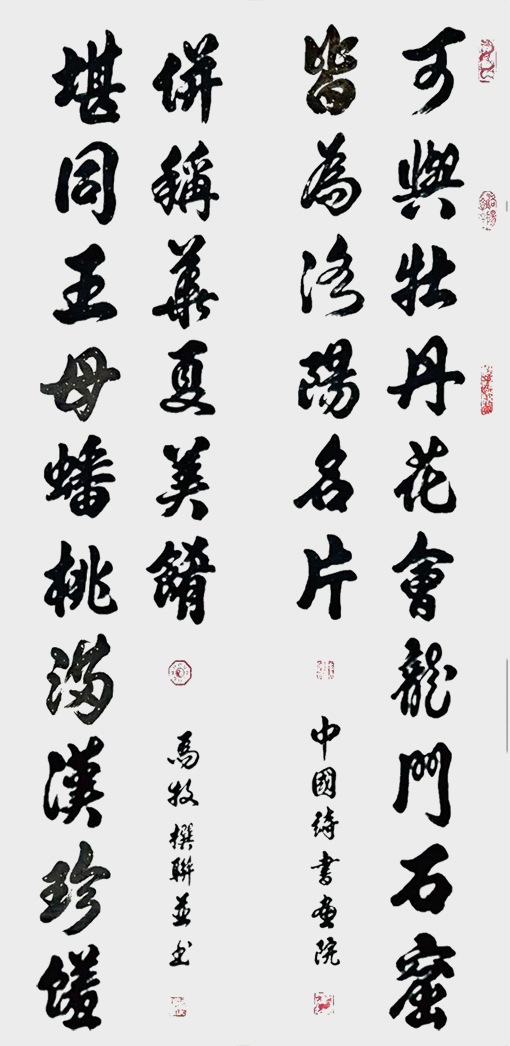 可與牡丹花會龍門石窟
皆為洛陽名片
中國綺書畫院
堪同王母蟠桃滿漢珍饈
併稱華夏美餚
馬牧撰聯並書